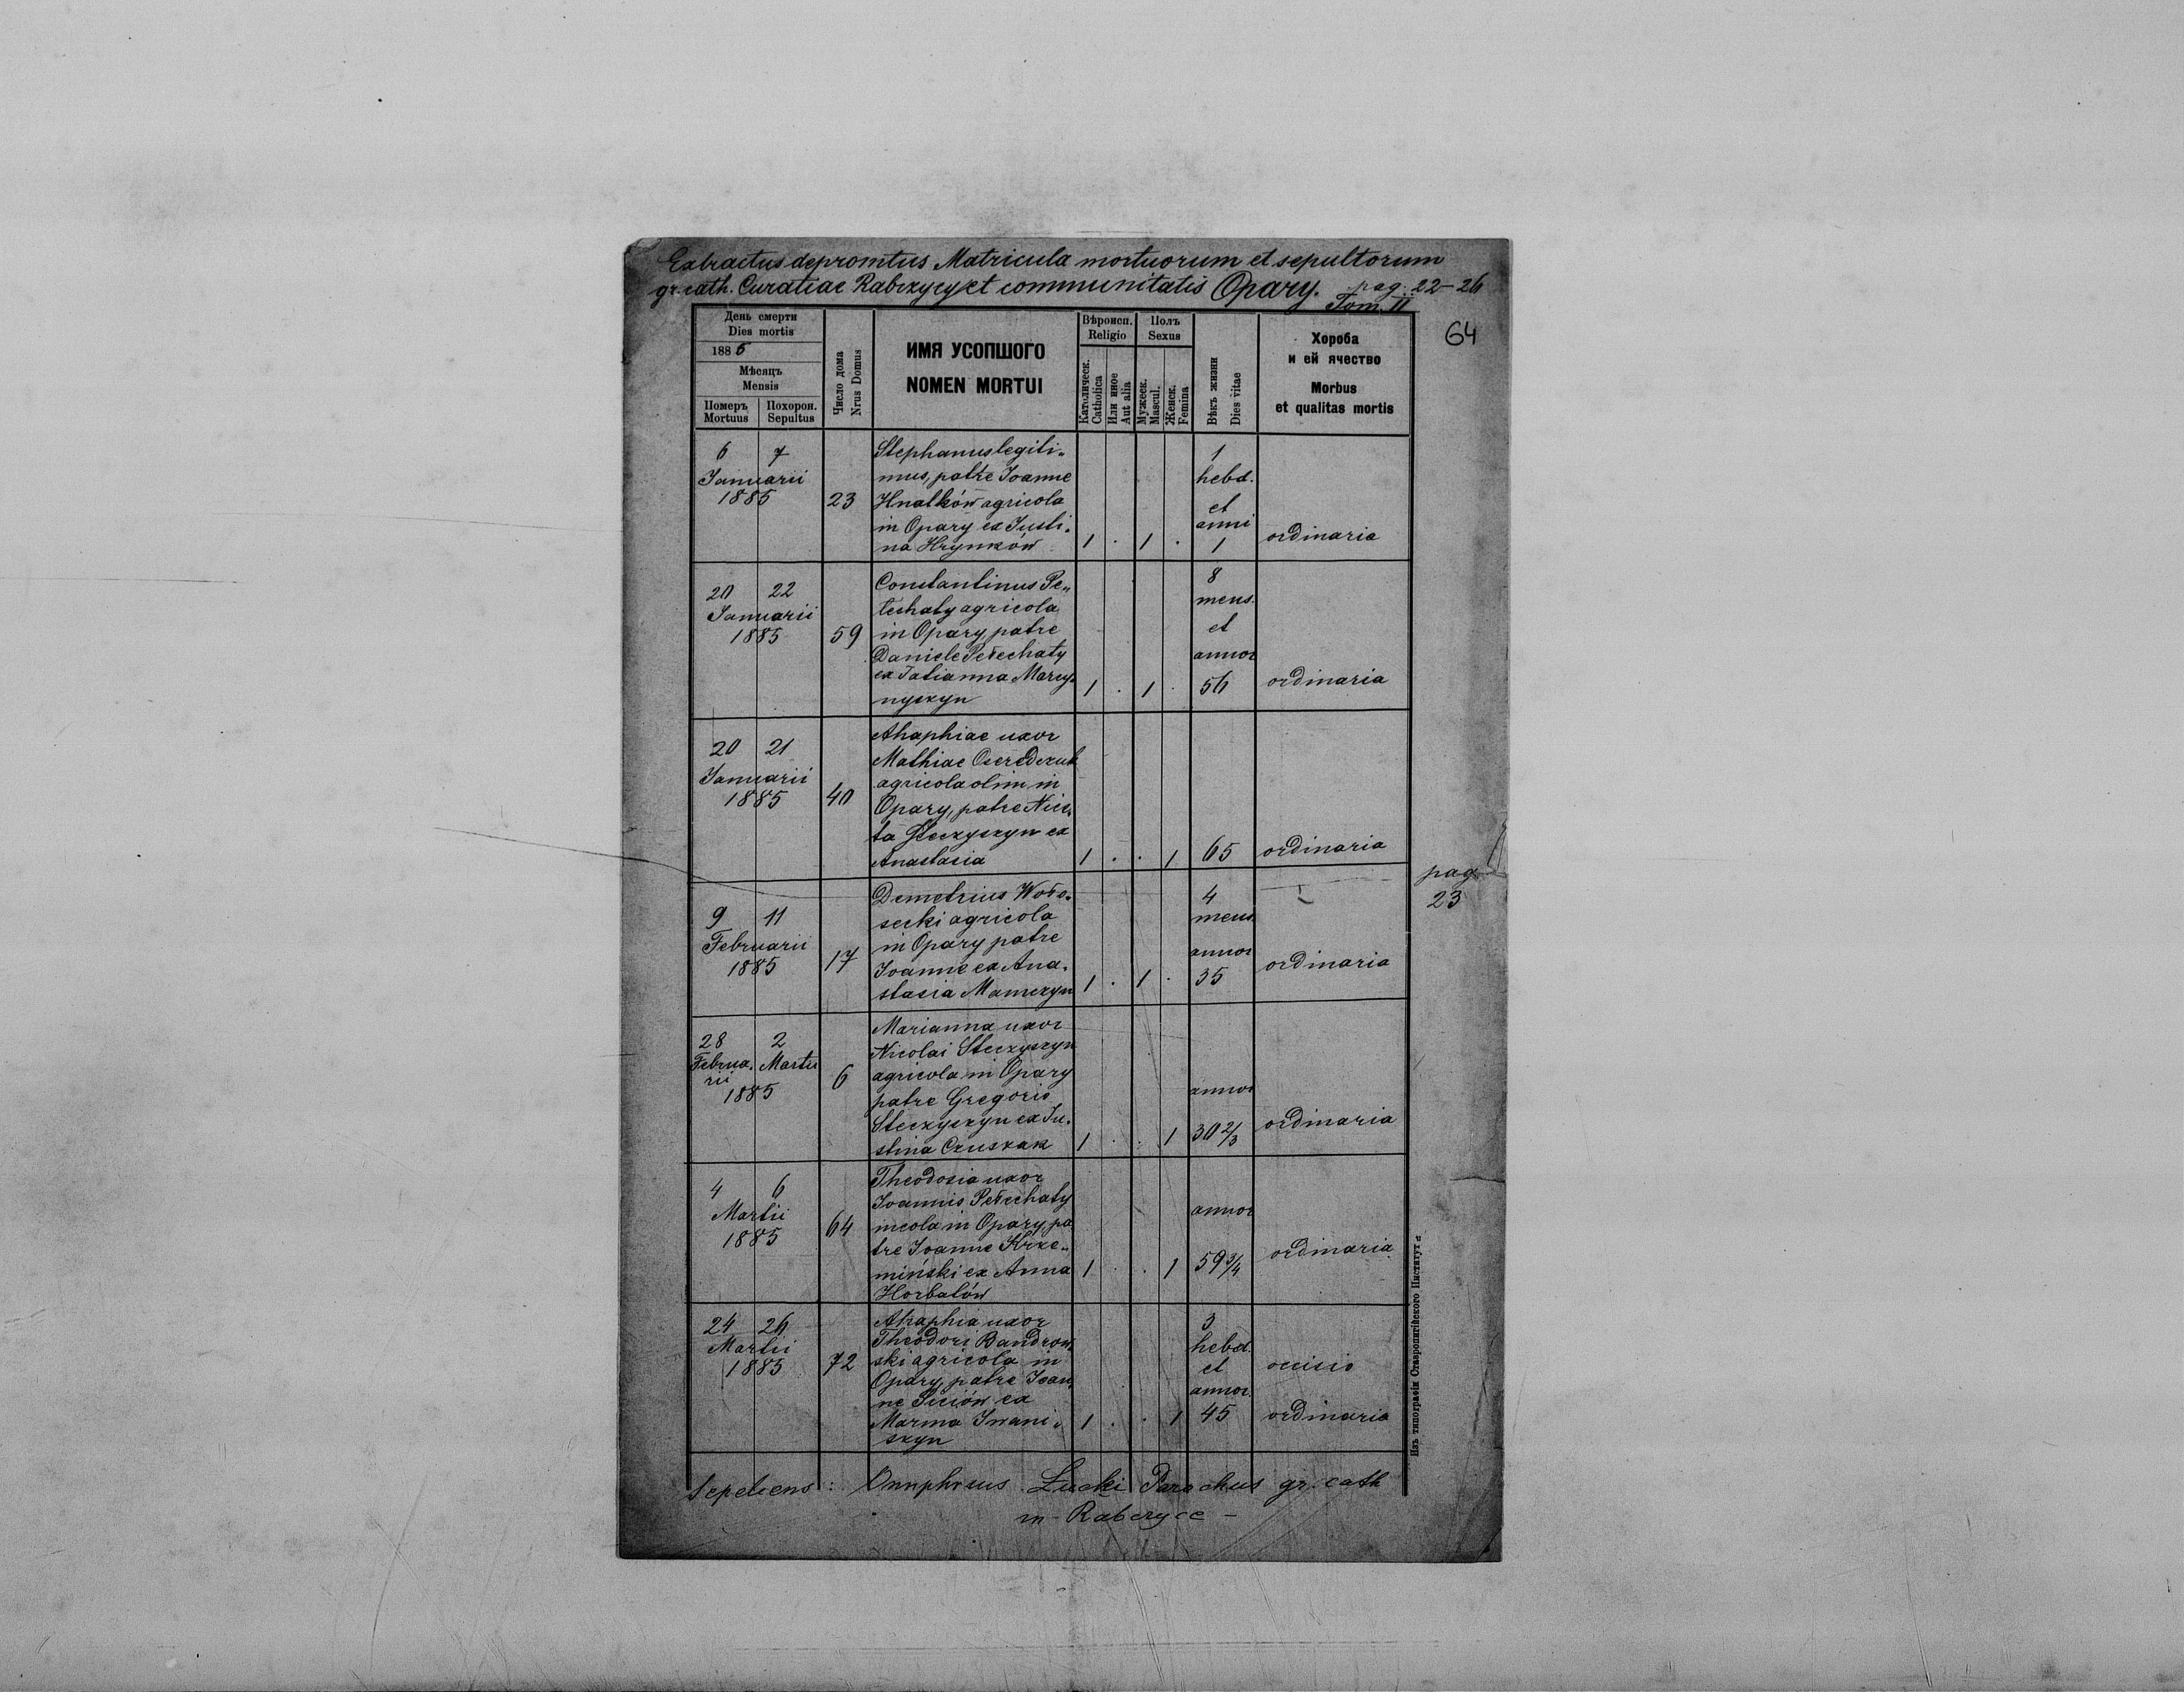 Extractus depromtus Matricula mortuorum et sepultorum
gr. cath. Curatiae Rabczycy et communitatis Opary. pag: 22-26
Tom. II
64
День смерти
Dies mortis
1885
Мѣсяцъ
Mensis
Померъ
Mortuus
Похорон.
Sepultus
Число дома
Nrus Domus
ИМЯ УСОПШОГО
NOMEN MORTUI
Вѣроисп.
Religio
Католическ.
Catholica
Или иное
Aut alia
Полъ
Sexus
Мужеск.
Mascul.
Женск.
Femina
Вѣкъ жизни
Dies vitae
Хороба
и ей ячество
Morbus
et qualitas mortis
6 7
Januarii
1885
23
Stephanus legiti„
mus, patre Joanne
Hnatków agricola
in Opary ex Justi„
na Hrynków
1 . 1 .
1
hebd.
et
anni
1
ordinaria
20 22
Januarii
1885
59
Constantinus Pe„
łechaty agricola
in Opary, patre
Daniele Pełechaty
ex Tatianna Marcy„
nyszyn
1 . 1 .
8
mens.
et
annor
56
ordinaria
20 21
Januarii
1885
40
Ahaphiae uxor
Mathiae Oseredczuk
agricola olim in
Opary, patre Nici„
ta Steczyszyn ex
Anastasia
1 . . 1
65
ordinaria
pag
23
9 11
Februarii
1885
17
Demetrius Woło„
secki agricola
in Opary patre
Joanne ex Ana„
stasia Mamczyn
1 . 1 .
4
mens.
annor
35
ordinaria
28 2
Februa„ Martii
rii
1885
6
Marianna uxor
Nicolai Steczyszyn
agricola in Opary
patre Gregorio
Steczyszyn ex Ju„
stina Czuszak
1 . . 1
annor
30 2/3
ordinaria
4 6
Martii
1885
64
Theodosia uxor
Joannis Pełechaty
incola in Opary, pa
tre Joanne Krze„
miński ex Anna
Horbalów
1 . . 1
annor
59 3/4
ordinaria
24 26
Martii
1885
72
Ahaphia uxor
Theodori Bandrow„
ski agricola in
Opary, patre Joan„
ne
ex
Marina Iwani„
szyn
1 . . 1
3
hebd.
et
annor.
45
occisio
ordinaria
Изъ типографіи Ставропигійского Институт
Sepeliens: Onuphrius Łucki Parochus gr. cath
in - Rabczyce -